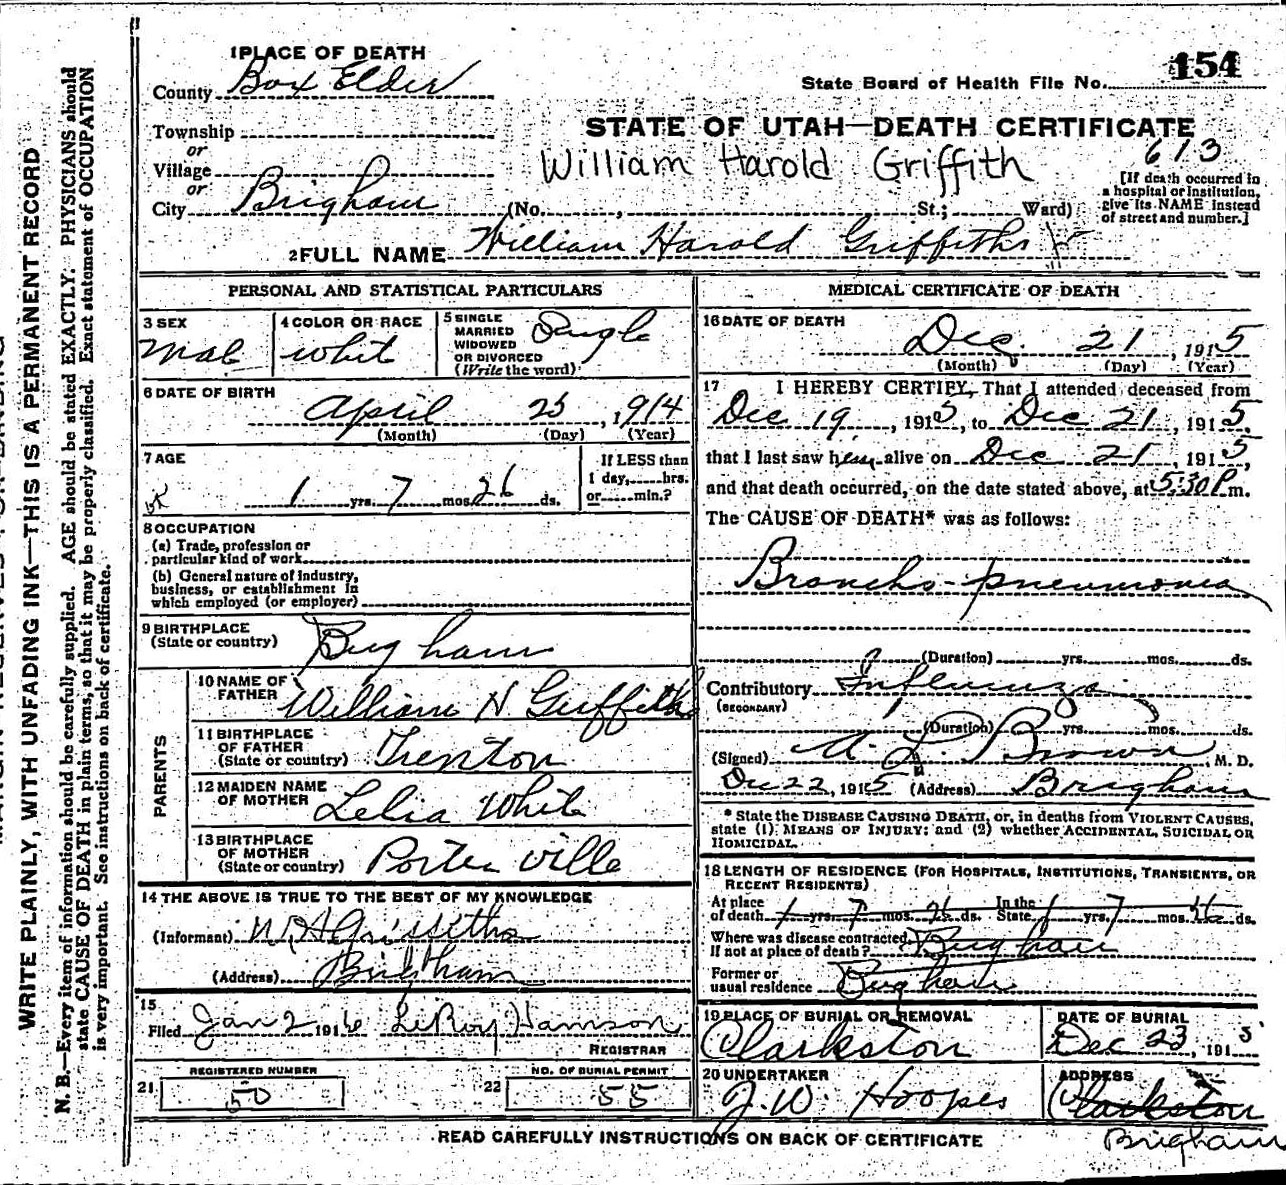 1 PLACE OF DEATH
County Box Elder
State Board of Health File No. 154
Township
or
Village
or
City Brigham
STATE OF UTAH—DEATH CERTIFICATE
William Harold Griffith
613
[If death occurred in
a hospital or institution,
give its NAME instead
of street and number.]
(No. , St.; Ward)
2 FULL NAME William Harold Griffiths
PERSONAL AND STATISTICAL PARTICULARS
3 SEX
Male
4 COLOR OR RACE
White
5 SINGLE
MARRIED
WIDOWED
OR DIVORCED
(Write the word)
Single
6 DATE OF BIRTH
April 25, 1914
(Month) (Day) (Year)
7 AGE
1 yrs. 7 mos. 26 ds.
If LESS than
1 day, hrs.
or min.?
8 OCCUPATION
(a) Trade, profession or
particular kind of work
(b) General nature of industry,
business, or establishment in
which employed (or employer)
9 BIRTHPLACE
(State or country)
Brigham
PARENTS
10 NAME OF
FATHER
William H Griffiths
11 BIRTHPLACE
OF FATHER
(State or country)
Trenton
12 MAIDEN NAME
OF MOTHER
Lelia White
13 BIRTHPLACE
OF MOTHER
(State or country)
Porterville
14 THE ABOVE IS TRUE TO THE BEST OF MY KNOWLEDGE
(Informant) W H Griffiths
(Address) Brigham
15
Filed Jan 2 1916 LeRoy Hanson
REGISTRAR
21 REGISTERED NUMBER
50
22 NO. OF BURIAL PERMIT
55
MEDICAL CERTIFICATE OF DEATH
16 DATE OF DEATH
Dec. 21, 1915
(Month) (Day) (Year)
17 I HEREBY CERTIFY, That I attended deceased from
Dec 19, 1915, to Dec 21, 1915.
that I last saw him alive on Dec 21, 1915,
and that death occurred, on the date stated above, at 5:30 P.m.
The CAUSE OF DEATH* was as follows:
Broncho-pneumonia
(Duration) yrs. mos. ds.
Contributory Influenza
(SECONDARY)
(Duration) yrs. mos. ds.
(Signed) A. L. Brown, M. D.
Dec 22, 1915 (Address) Brigham
* State the DISEASE CAUSING DEATH, or, in deaths from VIOLENT CAUSES,
state (1) MEANS OF INJURY; and (2) whether ACCIDENTAL, SUICIDAL OR
HOMICIDAL.
18 LENGTH OF RESIDENCE (FOR HOSPITALS, INSTITUTIONS, TRANSIENTS, OR
RECENT RESIDENTS)
At place
of death 1 yrs. 7 mos. 26 ds. In the
State 1 yrs. 7 mos. 26 ds.
Where was disease contracted,
if not at place of death? Brigham
Former or
usual residence Brigham
19 PLACE OF BURIAL OR REMOVAL
Clarkston
DATE OF BURIAL
Dec 23, 1915
20 UNDERTAKER
J. W. Hoopes
ADDRESS
Clarkston
Brigham
READ CAREFULLY INSTRUCTIONS ON BACK OF CERTIFICATE
WRITE PLAINLY, WITH UNFADING INK—THIS IS A PERMANENT RECORD
N. B.—Every item of information should be carefully supplied. AGE should be stated EXACTLY. PHYSICIANS should
state CAUSE OF DEATH in plain terms, so that it may be properly classified. Exact statement of OCCUPATION
is very important. See instructions on back of certificate.